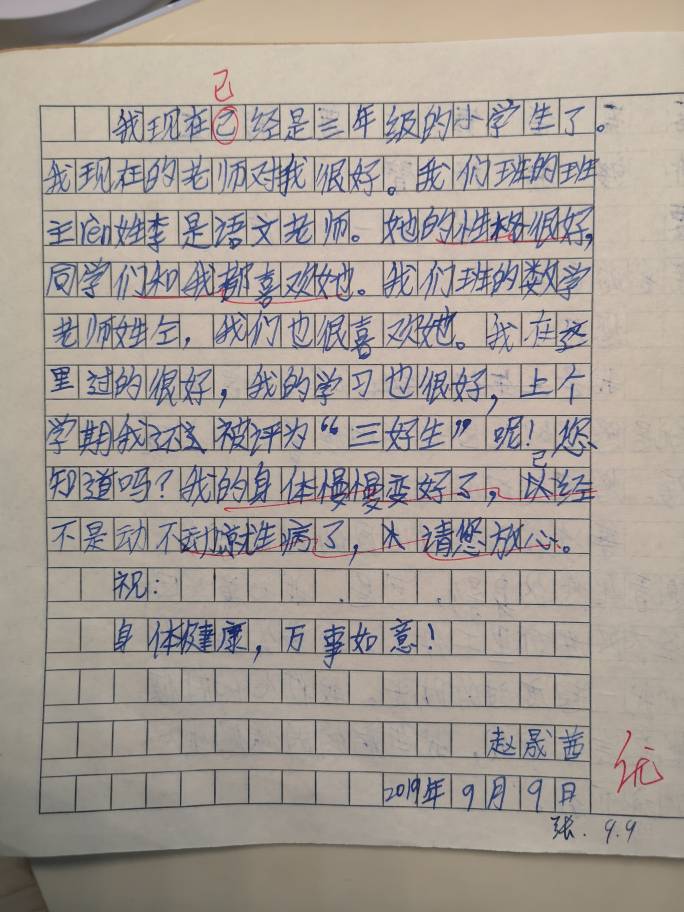 己
我现在已经是三年级的小学生了。
我现在的老师对我很好。我们班的班
主任姓李是语文老师。她的性格很好,
同学们和我都喜欢她。我们班的数学
老师姓仝,我们也很喜欢她。我在这
里过的很好,我的学习也很好,上个
学期我还被评为“三好生”呢!您
已
知道吗?我的身体慢慢变好了,以经
不是动不动就生病了,请您放心。
祝:
身体健康,万事如意!
赵晟茜
2019年9月9日
优
张.9.9